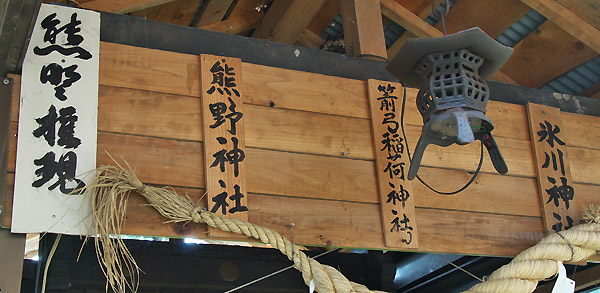 熊野権現
熊野神社
箭弓稲荷神社
氷川神社